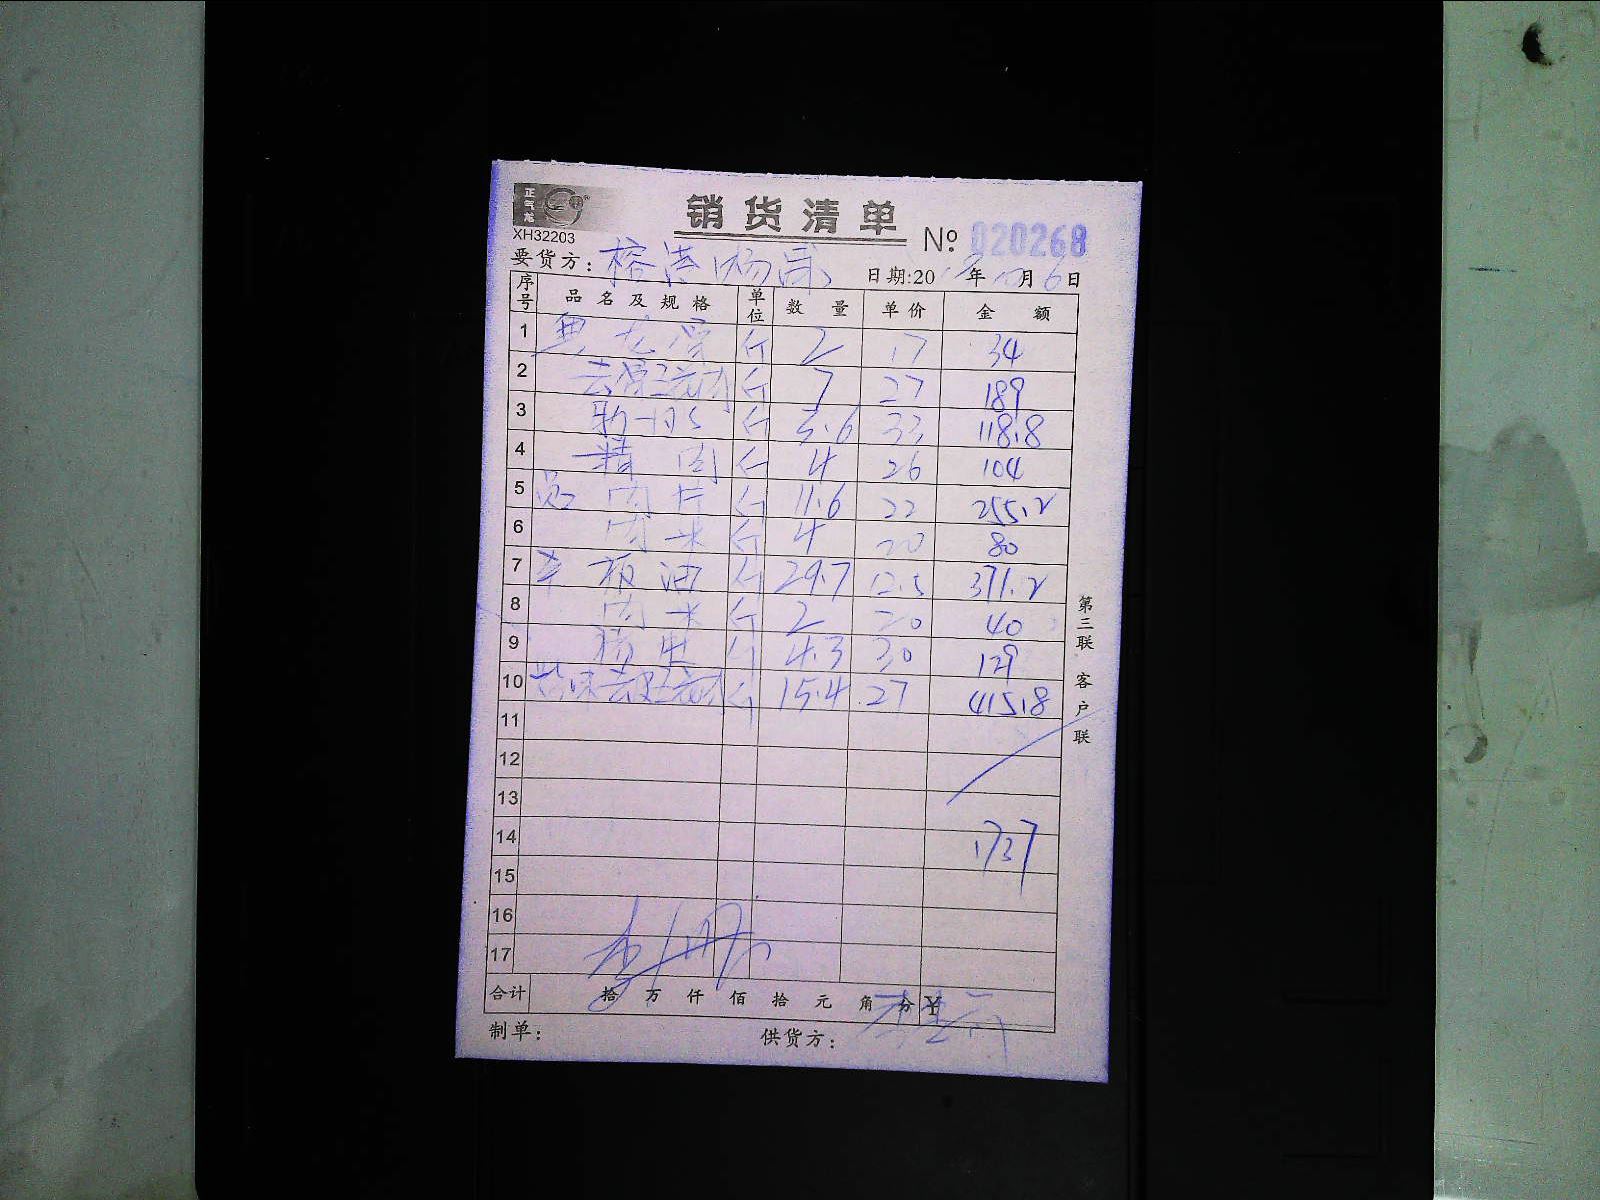 正气龙
XH32203
销货清单
№ 020268
要货方：
日期:20 年 月6日
序号 品名及规格 单位 数量 单价 金额
1 龙骨 斤 2 17 34
2 斤 7 27 189
3 斤 3.6 33 118.8
4 精肉 斤 4 26 104
5 肉片 斤 11.6 22 255.2
6 肉米 斤 4 20 80
7 板油 斤 29.7 12.5 371.2
8 肉米 斤 2 20 40
9 斤 4.3 30 129
10 斤 15.4 27 415.8
11
12
13
14 1737
15
16
17
合计 拾万仟佰拾元角分 ¥
制单： 供货方：
第三联 客户联